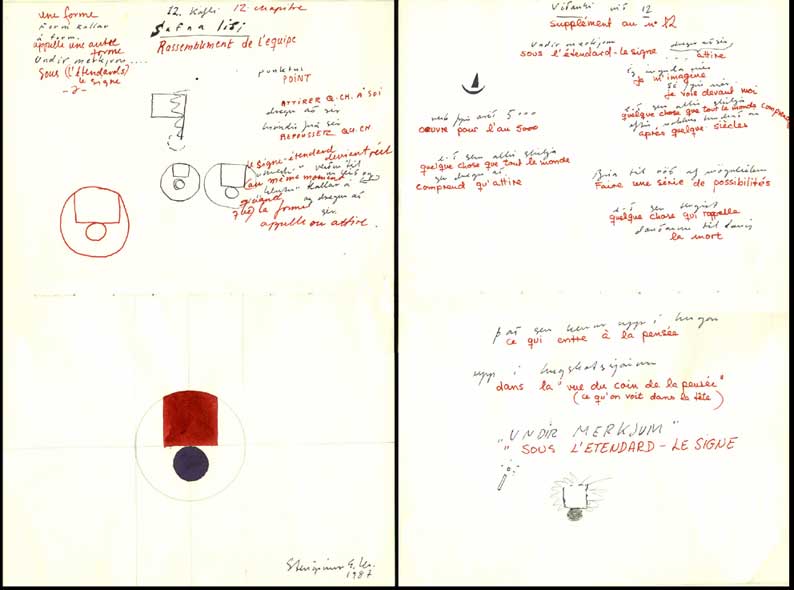 une forme
Form kallar
á form.
appelle une autre
forme
Undir merkjum....
sous (l'étendards)
le signe
12. Kafli 12 chapitre
Safna liði
Rassemblement de l'equipe
punktui
POINT
ATTIRER Q.CH. À SOI
dregur að sér
hrindir frá sér
REPOUSSER QU.CH
le signe-étendard devient réel
au même moment
quand
la forme
kallar á
appelle ou attire.
1987
Viðauki við 12
Supplément au n° 12
Undir merkjum
sous l'étendard-le signe
dregur að sér
... attire
Ég ímynda mér
je m'imagine
Ég sé fyrir mér
je vois devant moi
quelque chose que tout le monde comprend
après quelque siècles
verk fyrir árið 5000
œuvre pour l'an 5000
e-ð sem allir skilja
quelque chose que tout le monde
comprend qu'attire
Búa til röð af möguleikum
Faire une série de possibilités
e-ð sem
quelque chose qui rappelle
la mort
það sem kemur upp í hugan
ce qui entre à la pensée
upp í hugskotssjónum
dans la "vue du coin de la pensée"
(ce qu'on voit dans la tête)
"UNDIR MERKJUM"
"SOUS L'ETENDARD-LE SIGNE